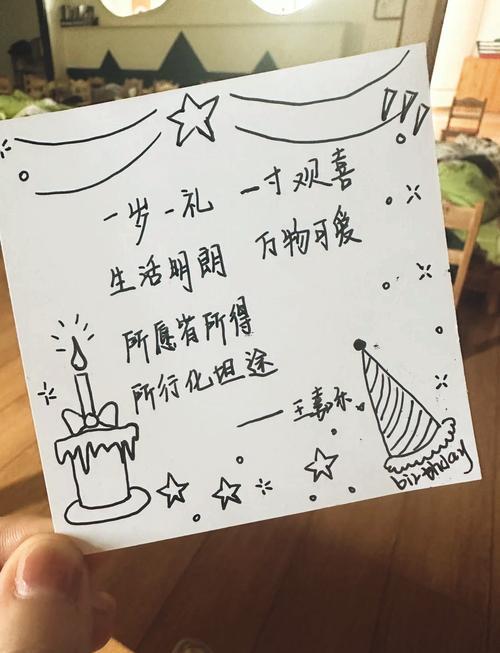 一岁一礼 一寸观喜
生活明朗 万物可爱
所愿皆所得
所行化坦途
——王嘉禾
birthday